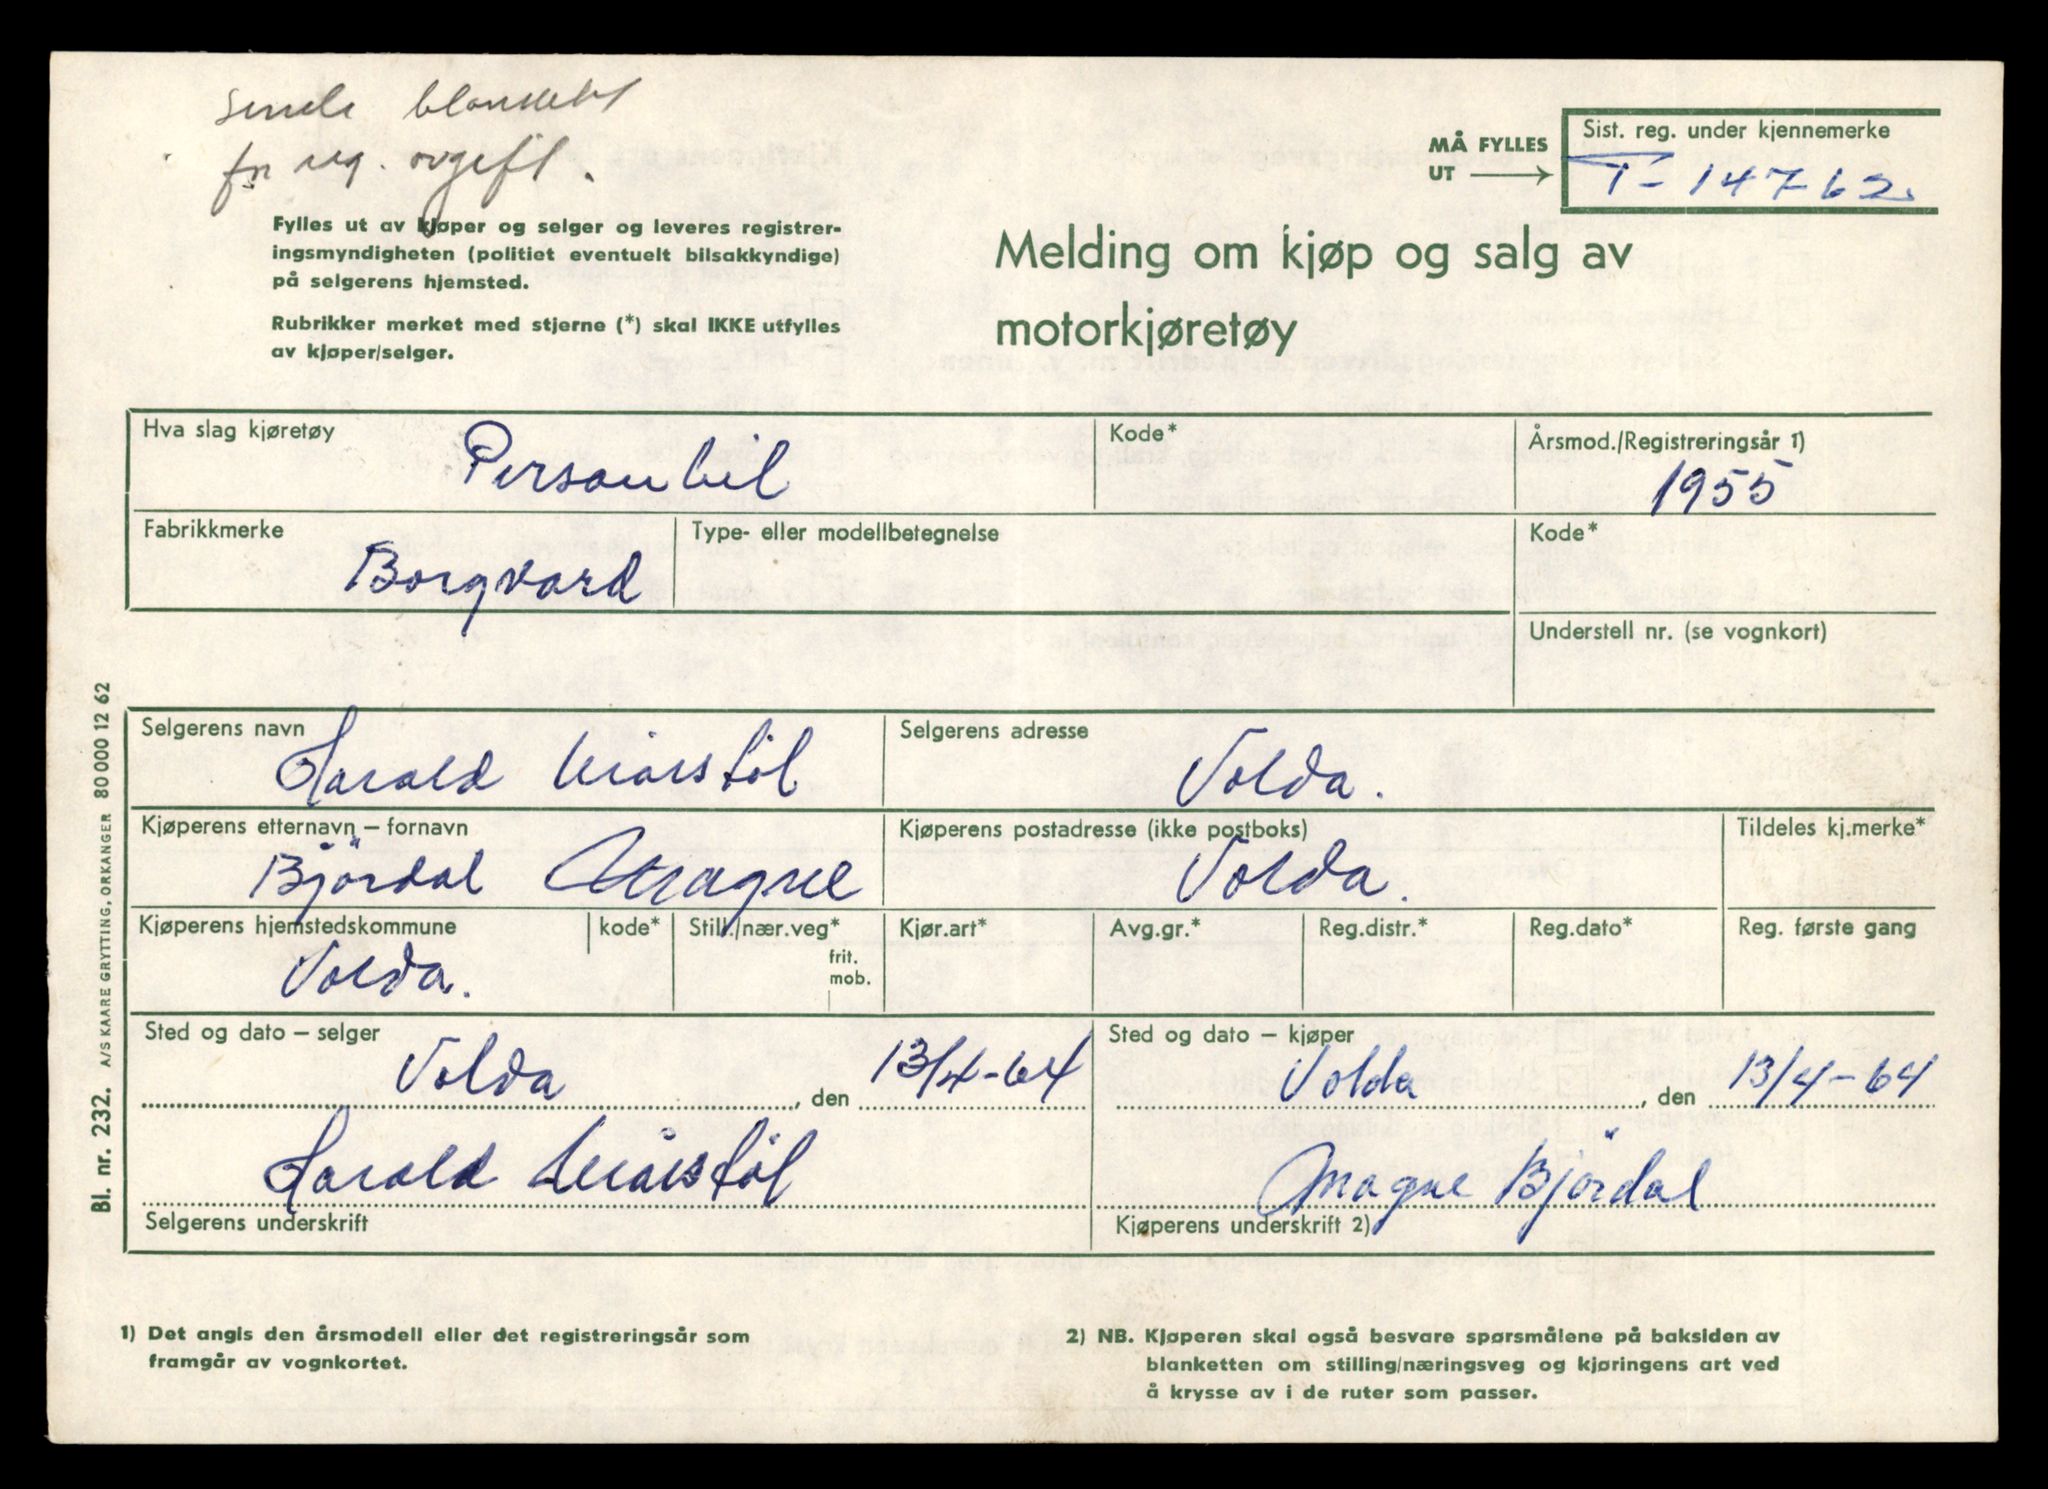 for reg. avgift.
MÅ FYLLES
UT
Sist. reg. under kjennemerke
T-14762
Fylles ut av kjøper og selger og leveres registrer-
ingsmyndigheten (politiet eventuelt bilsakkyndige)
på selgerens hjemsted.
Rubrikker merket med stjerne (*) skal IKKE utfylles
av kjøper/selger.
Melding om kjøp og salg av
motorkjøretøy
Hva slag kjøretøy
Personbil
Kode*
Årsmod./Registreringsår 1)
1955
Fabrikkmerke
Borgvard
Type- eller modellbetegnelse
Kode*
Understell nr. (se vognkort)
Selgerens navn
Harald
Selgerens adresse
Volda.
Kjøperens etternavn – fornavn
Bjørdal Magne
Kjøperens postadresse (ikke postboks)
Volda.
Tildeles kj.merke*
Kjøperens hjemstedskommune
Volda.
kode*
Still./nær.veg*
frit.
mob.
Kjør.art*
Avg.gr.*
Reg.distr.*
Reg.dato*
Reg. første gang
Sted og dato – selger
Volda, den 13/4-64
Sted og dato – kjøper
Volda, den 13/4-64
Harald
Selgerens underskrift
Magne Bjørdal
Kjøperens underskrift 2)
1) Det angis den årsmodell eller det registreringsår som
framgår av vognkortet.
2) NB. Kjøperen skal også besvare spørsmålene på baksiden av
blanketten om stilling/næringsveg og kjøringens art ved
å krysse av i de ruter som passer.
Bl. nr. 232. A/S KAARE GRYTTING, ORKANGER 80 000 12 62